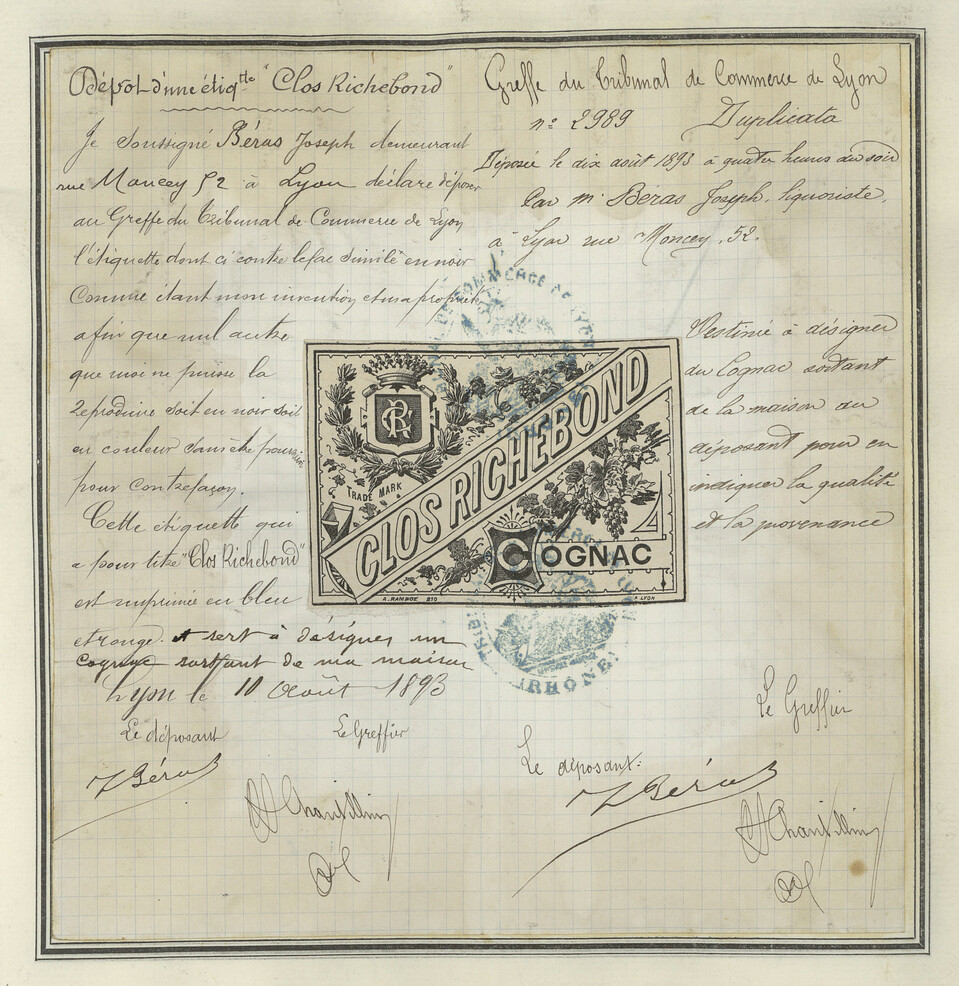 Dépôt d'une étiqtte "Clos Richebond"
Je soussigné Béras Joseph demeurant
rue Moncey 52 à Lyon déclare déposer
au Greffe du Tribunal de Commerce de Lyon
l'étiquette dont ci contre le fac similé en noir
Comme étant mon invention et ma propriété
afin que nul autre
que moi ne puisse la
reproduire soit en noir soit
en couleur sans être poursuivi
pour contrefaçon.
Cette étiquette qui
a pour titre "Clos Richebond"
est imprimée en bleu
et rouge. et sert à désigner un
cognac sortant de ma maison
Lyon le 10 Août 1893
Le déposant
Le Greffier
J Béras
Greffe du Tribunal de Commerce de Lyon
n° 2989 Duplicata
Déposée le dix août 1893 à quatre heures du soir
Par mr Béras Joseph, liquoriste,
à Lyon rue Moncey, 52.
Destinée à désigner
du Cognac sortant
de la maison du
déposant pour en
indiquer la qualité
et la provenance
TRADE MARK
CLOS RICHEBOND
COGNAC
A. RAMBOZ 210
A LYON
COMMERCE
RHÔNE
Le Greffier
Le déposant:
J Béras